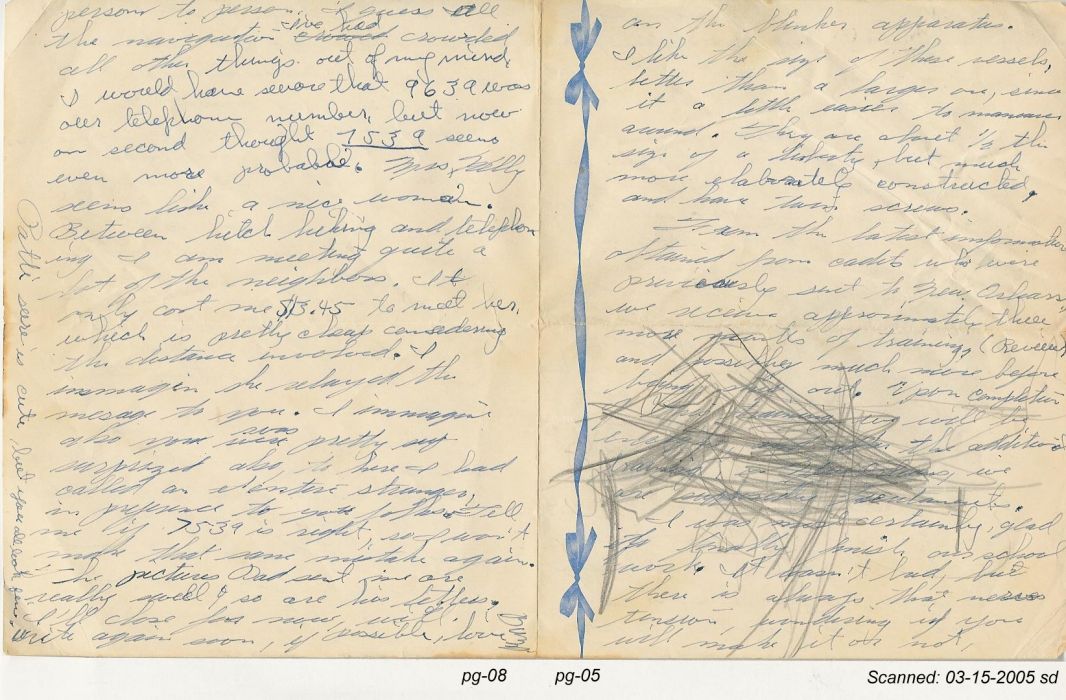 person to person. I guess all
the navigation I've had crowded
all other things out of my mind,
I would have swore that 9639 was
our telephone number, but now
on second thought 7539 seems
even more probable. Mrs. Kelly
seems like a nice woman.
Between hitch hiking and telephon
ing I am meeting quite a
lot of the neighbors. It
only cost me $3.45 to meet her,
which is pretty cheap considering
the distance involved. I
immagin she relayed the
message to you. I immagine
also you were pretty
surprized also, to hear I had
called an entire stranger,
in preference to you folks. Tell
me if 7539 is right, so I won't
make that same mistake again.
The pictures Dad sent me are
really swell & so are his letters.
I'll close for now, will
write again soon, if possible, love
Patti sure is cute, but you all look fine.
on the blinker apparatus.
I like the size of these vessels,
better than a larger one, since
it a little easier to maneuver
around. They are about 1/2 the
size of a liberty, but much
more elaborately constructed,
and have twin screws.
From the latest information
obtained from cadets who were
previously sent to New Orleans
we receive approximately three
more months of training, (Review)
and possibley much more before
being out. Upon completion
will be
the addition
we
are
I was most certainly, glad
to finally finish our school
work. It wasn't bad, but
there is always that
tension, wondering if you
will make it or not,
pg-08
pg-05
Scanned: 03-15-2005 sd